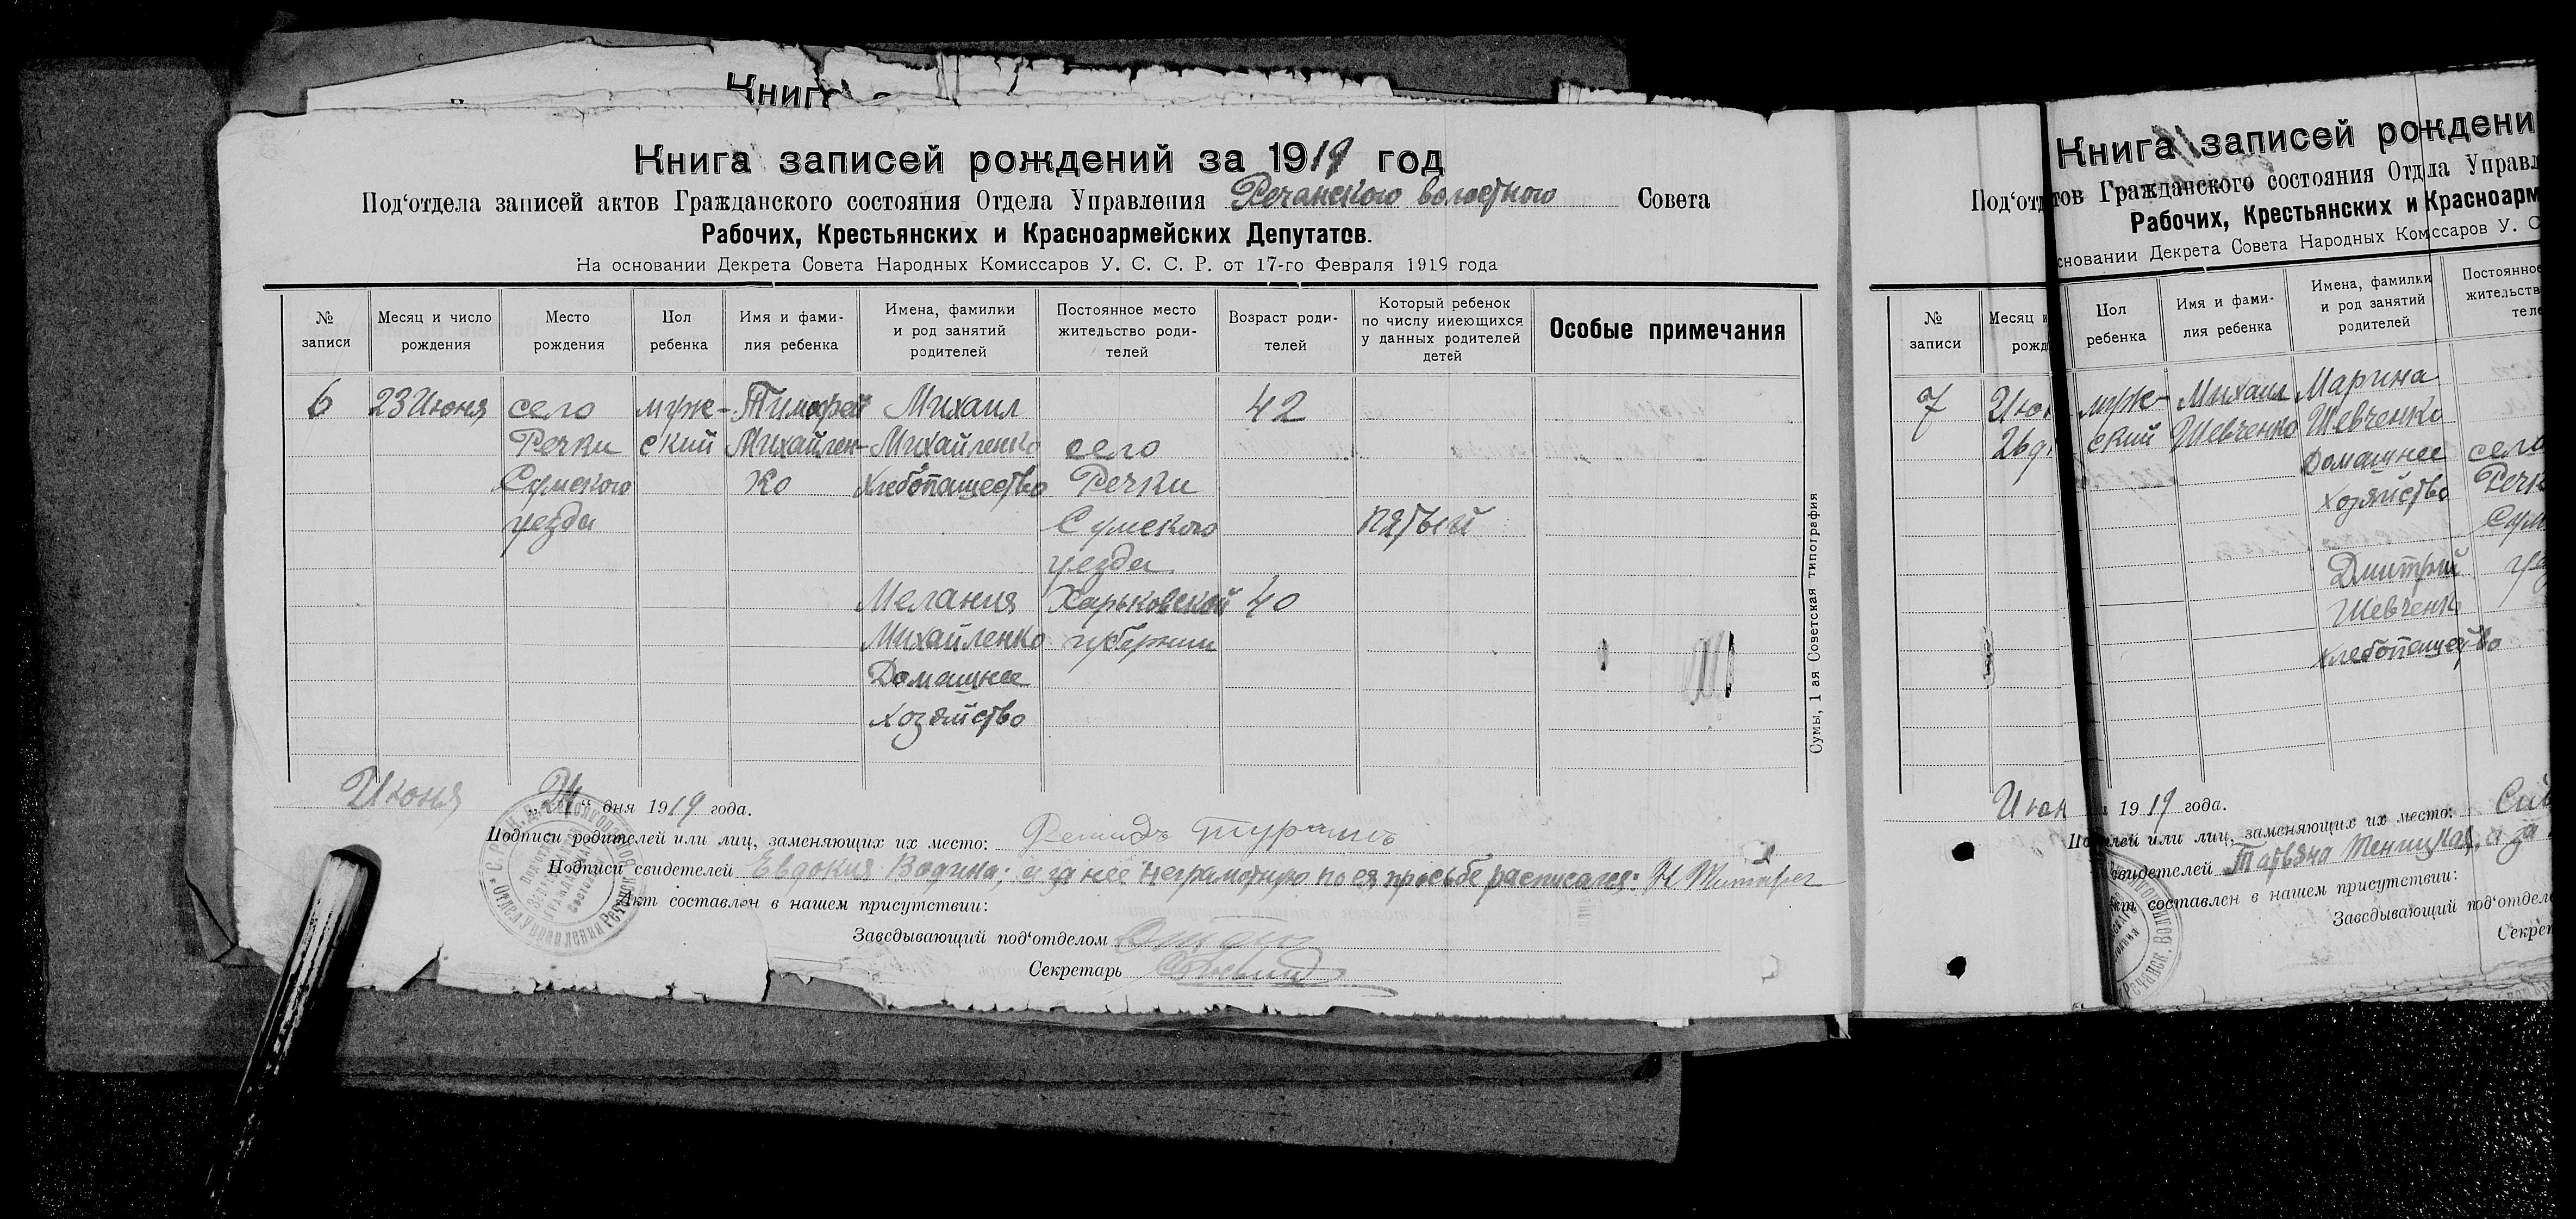 Книг
Книга записей рождений за 1919 год
Под‘отдела записей актов Гражданского состояния Отдела Управления Речанского волостного Совета
Рабочих, Крестьянских и Красноармейских Депутатов.
На основании Декрета Совета Народных Комиссаров У. С. С. Р. от 17-го Февраля 1919 года
№ записи
Месяц и число рождения
Место рождения
Пол ребенка
Имя и фами-
лия ребенка
Имена, фамилки
и род занятий
родителей
Постоянное место
жительство роди-
телей
Возраст роди-
телей
Который ребенок
по числу имеющихся
у данных родителей
детей
Особые примечания
6 23 Июня село муж- Тимофей Михаил 42
Речки ский Михайлен- Михайленко село
Сумского ко хлебопашество Речки
уезда Сумского пятый
уезда
Мелания Харьковской 40
Михайленко губернии
Домашнее
хозяйство
Сумы, 1 ая Советская типография
Июня „24“ дня 1919 года.
Подписи родителей или лиц, заменяющих их место:
Подписи свидетелей Евдокия Водина; а за нее неграмотную по ея просьбе расписался:
Акт составлен в нашем присутствии:
Заведывающий под‘отделом
Секретарь
Книга записей рождени
Под‘отд тов Гражданского состояния Отдла Управл
Рабочих, Крестьянских и Красноарм
сновании Декрета Совета Народных Комиссаров У. С
№
записи
Месяц и
рожд
Пол
ребенка
Имя и фами-
лия ребенка
Имена, фамилки
и род занятий
родителей
Постоянное
жительств
теле
7 Июн муж- Михаил Марина
26 д ский Шевченко Шевченко
Домашнее село
хозяйство Речк
Сум
Дмитрий уез
Шевченк
хлебопашество
Июн 1919 года.
лей или лиц, заменяющих их место:
свидетелей Татьяна а за
кт составлен в нашем присутствии:
Заведывающий под‘отдел
Секрет